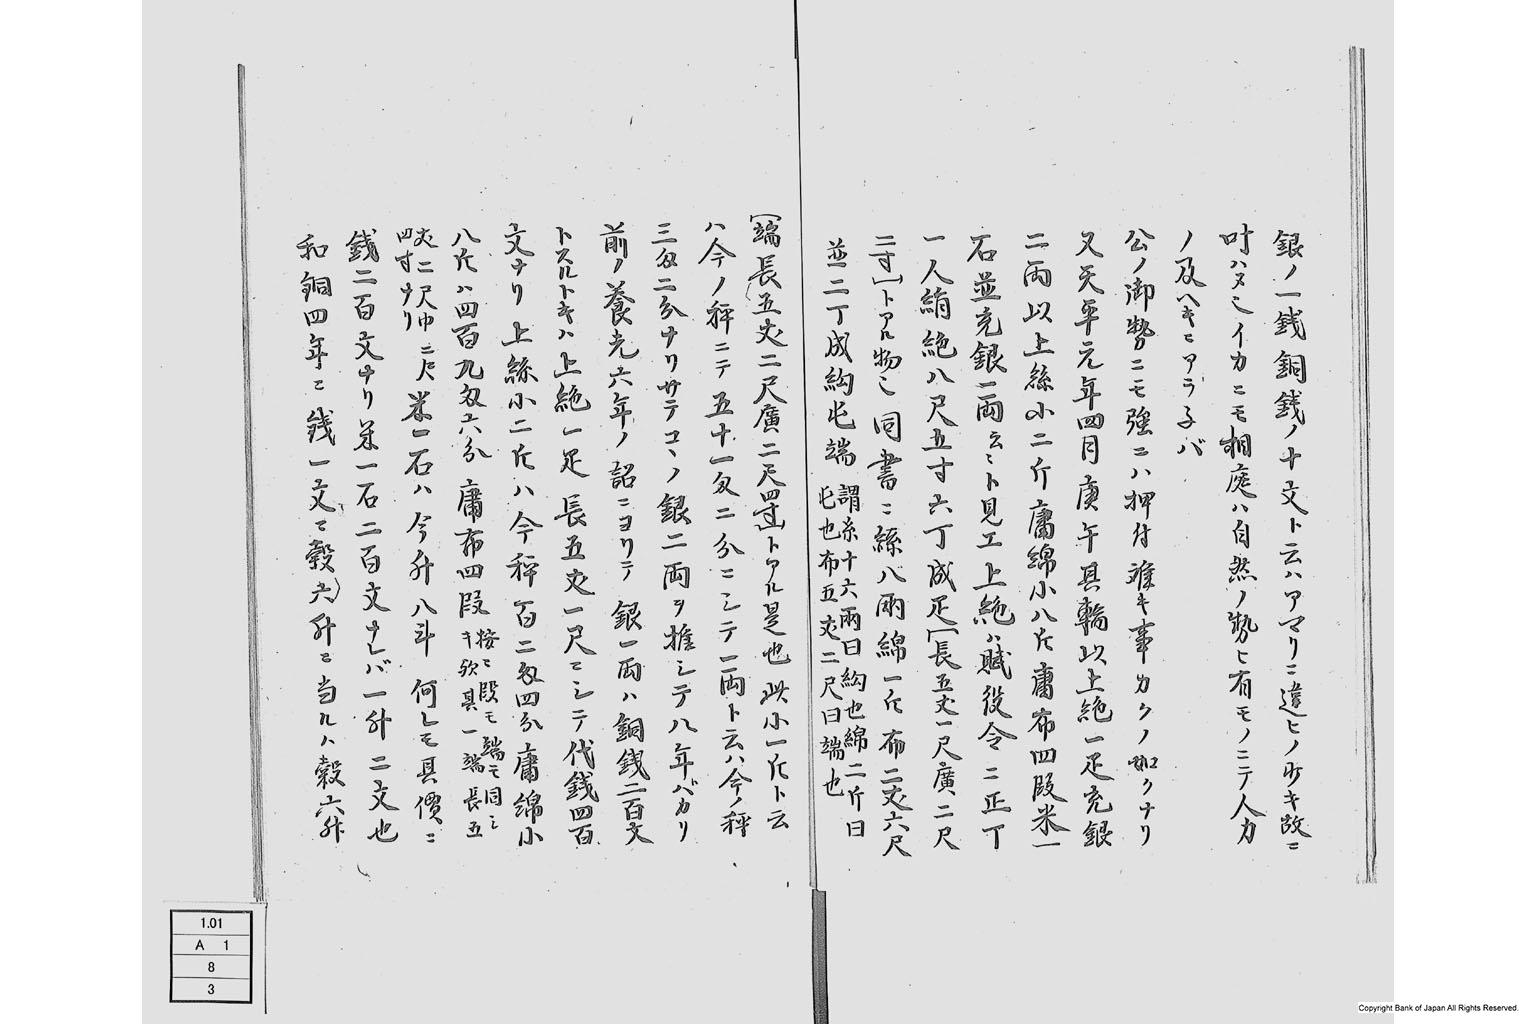 銀ノ一銭銅銭ノ十文ト云ハアマリニ違ヒノ少キ故ニ
叶ハヌ也イカニモ相庭ハ自然ノ勢ヒ有モノニテ人力
ノ及ヘキニアラネバ
公ノ御勢ニモ強ニハ押付難キ事カクノ如クナリ
又天平元年四月庚午其輸以上絁一疋充銀
二両以上絲小二斤庸綿小八斤庸布四段米一
石並充銀一両云々ト見エ上絁ハ賦役令ニ正丁
一人絹絁八尺五寸六丁成疋[長五丈一尺廣二尺
二寸]トアル物也同書ニ絲八両綿一斤布二丈六尺
並二丁成絇屯端 謂糸十六両曰絇也綿二斤曰
屯也布五丈二尺曰端也
[端長五丈二尺廣二尺四寸]トアル是也此小一斤ト云
ハ今ノ秤ニテ五十一匁二分ニシテ一両ト云ハ今ノ秤
三匁二分ナリサテコヽノ銀二両ヲ推シテ八年バカリ
前ノ養老六年ノ詔ニヨリテ銀一両ハ銅銭二百文
トスルトキハ上絁一疋長五丈一尺ニシテ代銭四百
文ナリ上絲小二斤ハ今秤百二匁四分庸綿小
八斤ハ四百九匁六分庸布四段 按ニ段モ端モ同シ
キ歟其一端長五
丈二尺巾二尺
四寸ナリ
米一石ハ今升八斗何レモ其價ニ
銭二百文ナリ米一石二百文ナレバ一升二文也
和銅四年ニ銭一文ニ穀六升ニ当ルハ穀六升
1.01
A 1
8
3
Copyright Bank of Japan All Rights Reserved.